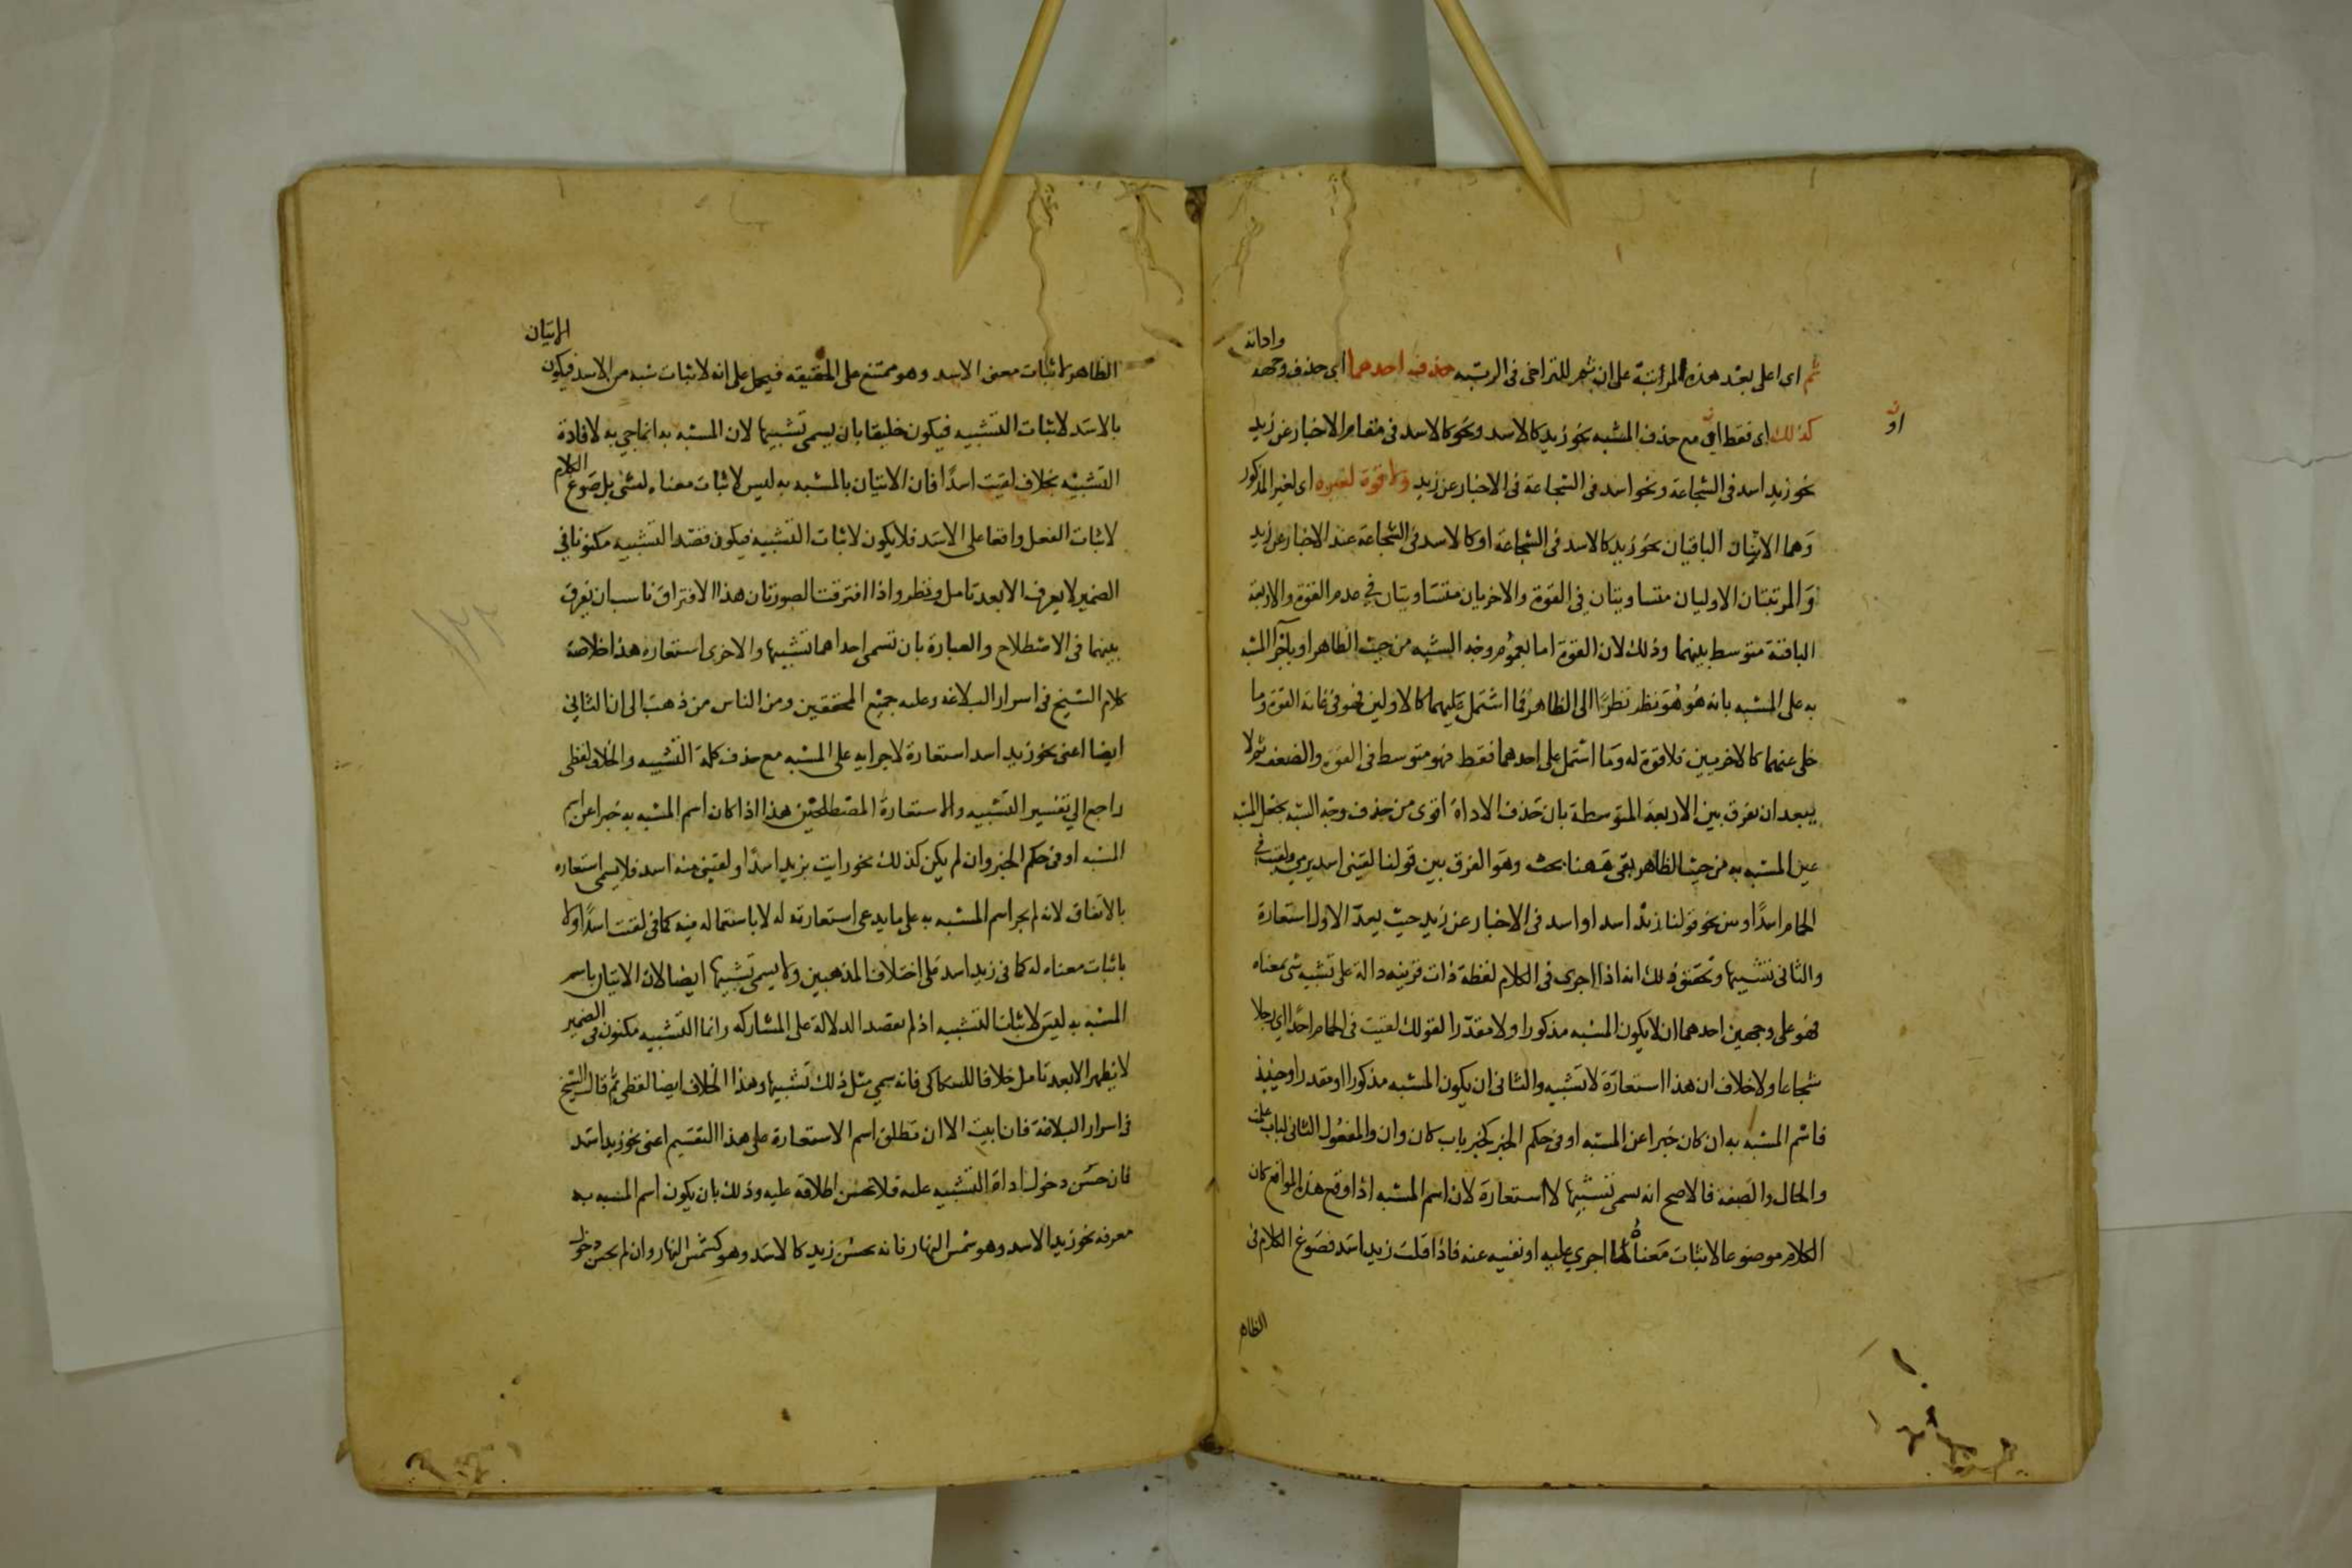 واداته
ثم اى اعلى بعد هذه المرتبة على ان ثم للتراخى فى الرتبه حذف احدهما اى حذف وجهه
او
كذلك اى فقط او مع حذف المشبه نحو زيد كالاسد ونحو كالاسد فى مقام الاخبار عن زيد
نحو زيد اسد فى الشجاعة ونحو اسد فى الشجاعة فى الاخبار عن زيد ولا قوة لغيره اى لغير المذكور
وهما الاثنان الباقيان نحو زيد كالاسد فى الشجاعة او كالاسد فى الشجاعة عند الاخبار عن زيد
والمرتبتان الاوليان متساويتان فى القوة والاخريان متساويتان فى عدم القوة والاربعة
الباقية متوسط بينهما وذلك لان القوة اما بعموم وجه الشبه من حيث الظاهر او باجرا المشبه
به على المشبه بانه هو هو نظرا الى الظاهر فما اشتمل عليهما كالاولين فهو فى غاية القوة وما
خلى عنهما كالاخريين فلا قوة له وما اشتمل على احدهما فقط فهو متوسط فى القوة والضعف ثم لا
يبعد ان يفرق بين الاربعة المتوسطة بان حذف الاداة اقوى من حذف وجه الشبه بجعل المشبه
عين المشبه به من حيث الظاهر بقى ههنا بحث وهو الفرق بين قولنا لقينى اسد يرمى ولقيت فى
الحمام اسدا وبين نحو قولنا زيد اسد او اسد فى الاخبار عن زيد حيث يعد الاول استعارة
والثانى تشبيها وتحقيق ذلك انه اذا اجرى فى الكلام لفظة ذات قرينه دالة على تشبيه شى بمعناه
فهو على وجهين احدهما ان لا يكون المشبه مذكورا ولا مقدرا لقولك لقيت فى الحمام اسدا اى رجلا
شجاعا ولا خلاف ان هذا استعارة لا تشبيه والثانى ان يكون المشبه مذكورا او مقدرا وحينئذ
فاسم المشبه به ان كان خبرا عن المشبه او فى حكم الخبر كخبر باب كان وان والمفعول الثانى لباب علمت
والحال والصفه فالاصح انه يسمى تشبيها لا استعارة لان اسم المشبه اذا وقع هذه المواقع كان
الكلام موضوعا لاثبات معناه لما اجرى عليه او نفيه عنه فاذا قلت زيد اسد فصوغ الكلام فى
الظاهر
الاتيان
الظاهر لاثبات معنى الاسد وهو ممتنع على الحقيقه فيحمل على انه لاثبات شبه من الاسد فيكون
بالاسد لاثبات التشبيه فيكون خليقا بان يسمى تشبيها لان المشبه به انما جى به لافادة
التشبيه بخلاف لقيت اسدا فان الاتيان بالمشبه به ليس لاثبات معناه لشى بل صوغ الكلام
لاثبات الفعل واقعا على الاسد فلا يكون لاثبات التشبيه فيكون قصد التشبيه مكنونا فى
الضمير لا يعرف الا بعد تامل ونظر واذا افترقت الصورتان هذا الافتراق ناسب ان يفرق
بينهما فى الاصطلاح والعبارة بان تسمى احداهما تشبيها والاخرى استعاره هذا خلاصة
كلام الشيخ فى اسرار البلاغه وعليه جميع المحققين ومن الناس من ذهب الى ان الثانى
ايضا اعنى نحو زيد اسد استعارة لاجرايه على المشبه مع حذف كلمة التشبيه والخلاف لفظى
راجع الى تفسير التشبيه والاستعارة المصطلحين هذا اذا كان اسم المشبه به خبرا عن اسم
المشبه او فى حكم الخبر وان لم يكن كذلك نحو رايت بزيد اسدا ولقينى منه اسد فلا يسمى استعاره
بالاتفاق لانه لم يجر اسم المشبه به على ما يدعى استعارته له لا باستعماله فيه كما فى لقيت اسدا ولا
باثبات معناه له كما فى زيد اسد على اختلاف المذهبين ولا يسمى تشبيها ايضا لان الاتيان باسم
المشبه به ليس لاثبات التشبيه اذ لم يقصد الدلالة على المشاركه وانما التشبيه مكنون فى الضمير
لا يظهر الا بعد تامل خلافا للسكاكى فانه سمى مثل ذلك تشبيها وهذا الخلاف ايضا لفظى ثم قال الشيخ
فى اسرار البلاغة فان ابيت الا ان تطلق اسم الاستعارة على هذا القسم اعنى نحو زيد اسد
فان حسن دخول اداة التشبيه عليه فلا يحسن اطلاقه عليه وذلك بان يكون اسم المشبه به
معرفه نحو زيد الاسد وهو شمس النهار فانه يحسن زيد كالاسد وهو كشمس النهار وان لم يحسن دخول